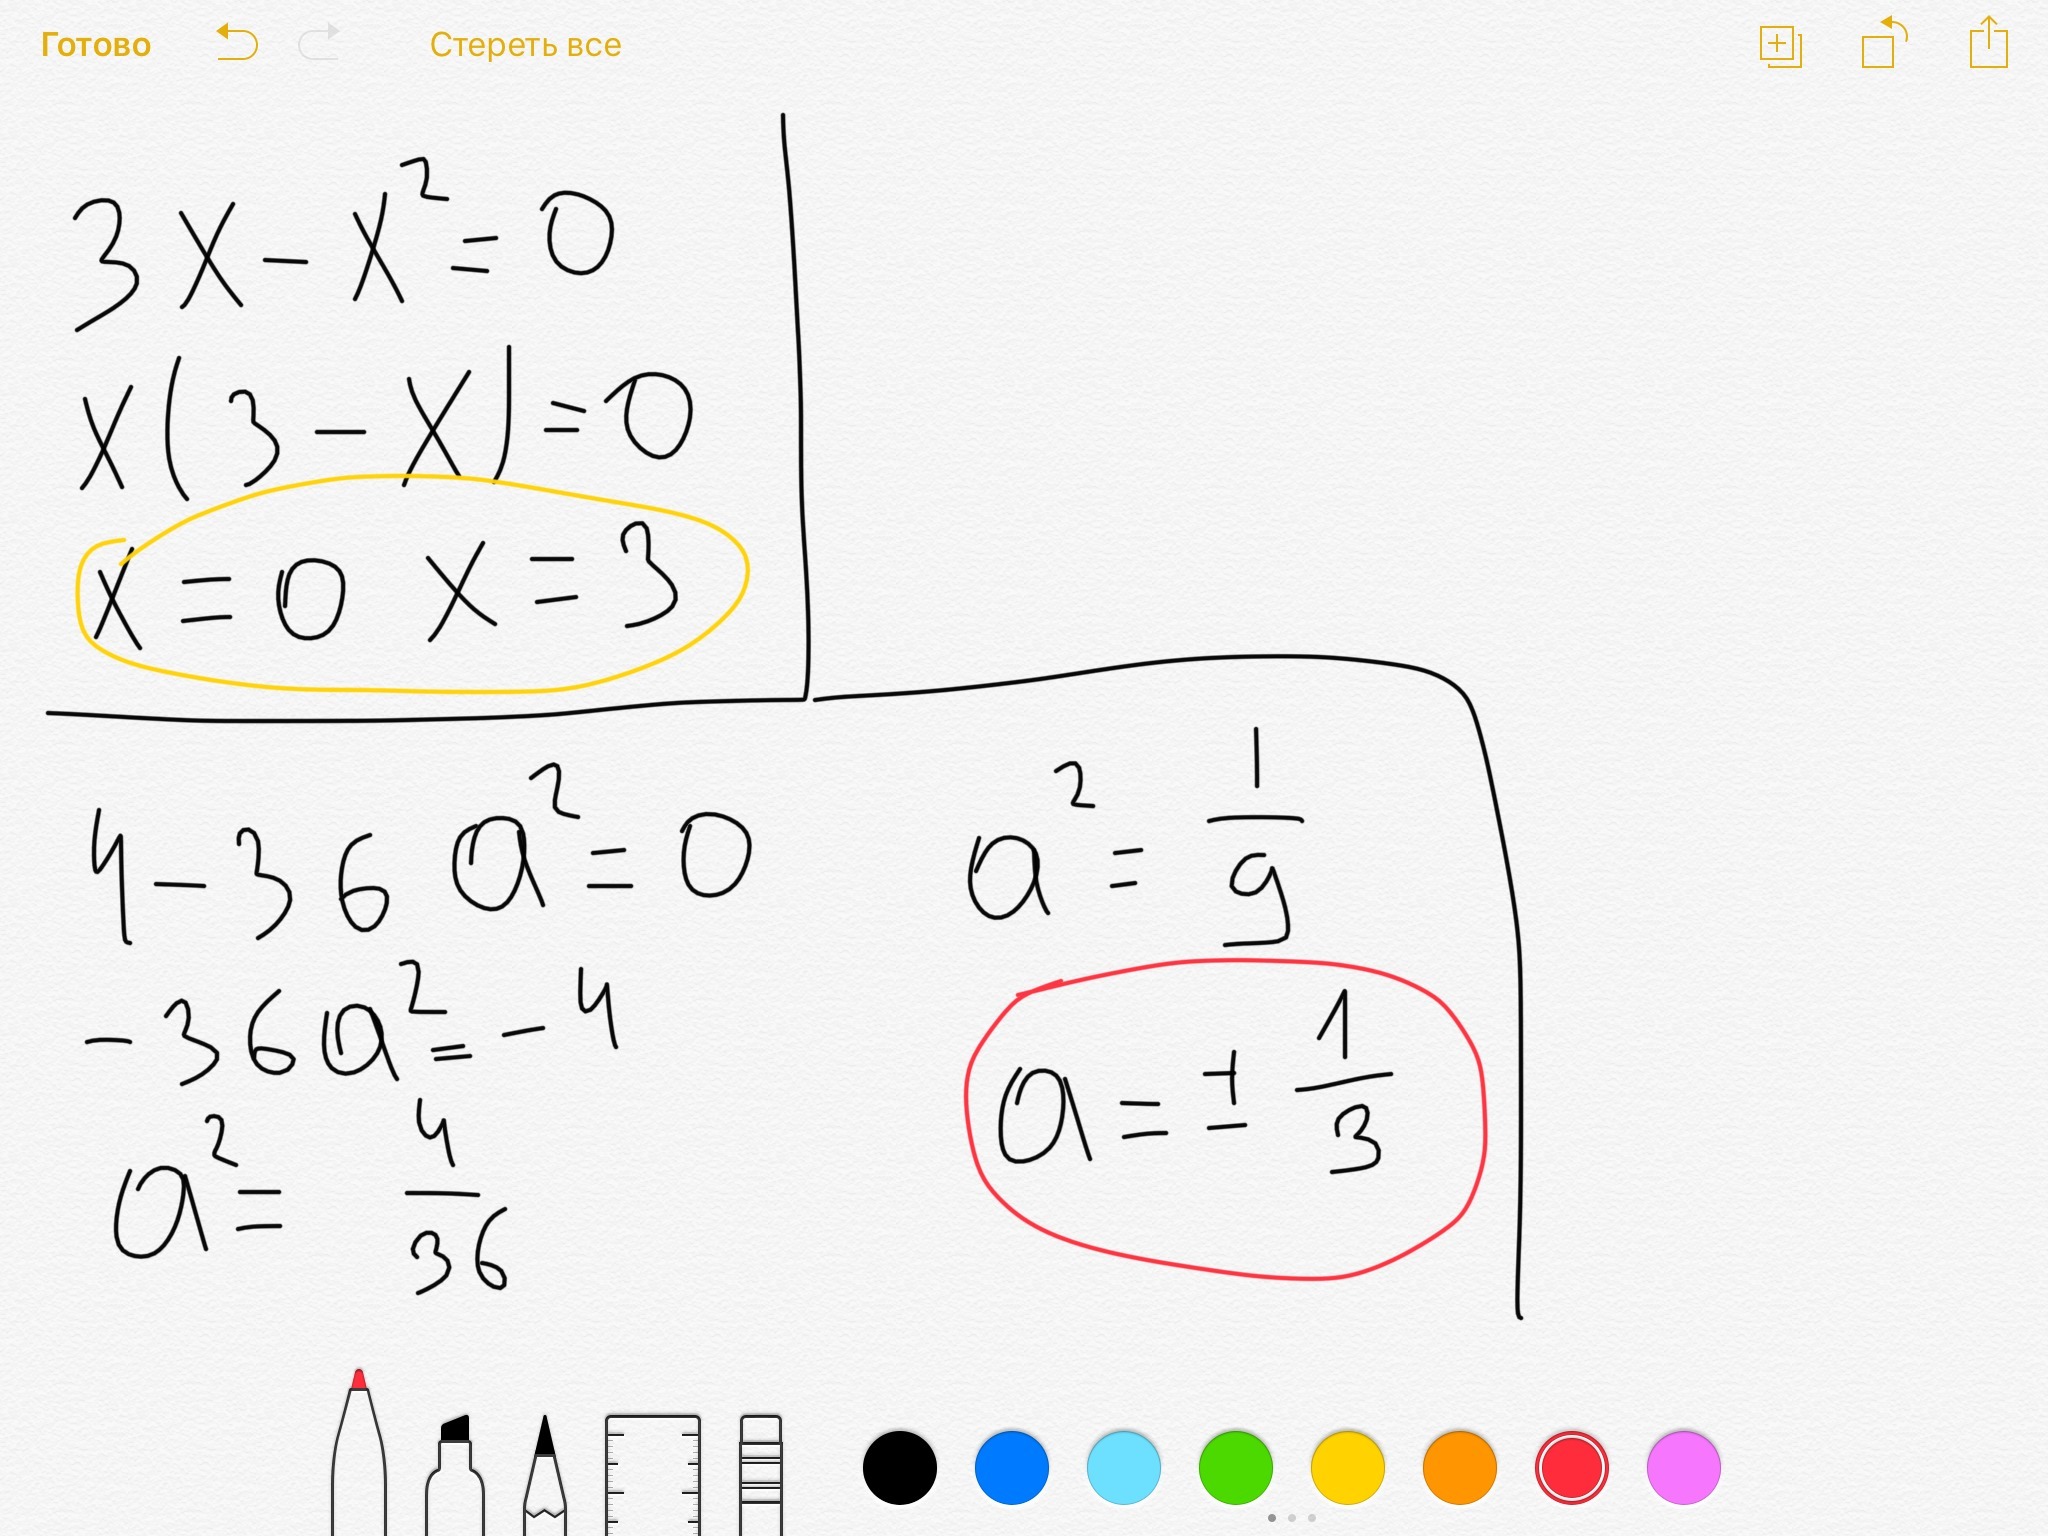 Готово Стереть все
3x-x²=0
x(3-x)=0
x=0 x=3
4-36a²=0
-36a²=-4
a²= 4/36
a²= 1/9
a=± 1/3